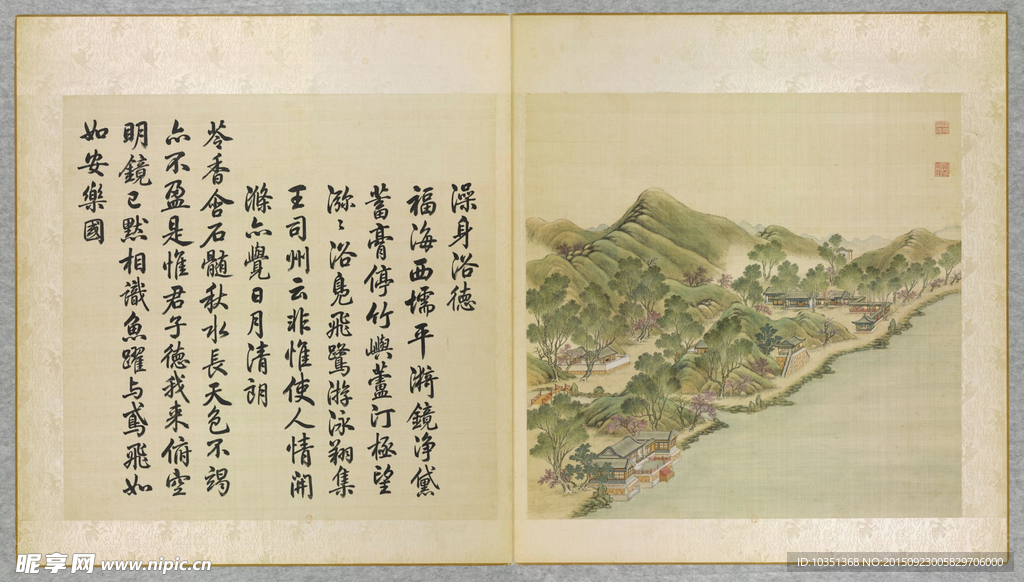 澡身浴德
福海西壖平漪鏡净黛
蓄膏停竹嶼蘆汀極望
瀰〻浴鳧飛鷺游泳翔集
王司州云非惟使人情開
滌亦覺日月清朗
苓香含石髓秋水長天色不竭
亦不盈是惟君子德我来俯空
明鏡已默相識魚躍与鳶飛如
如安樂國
昵享网 www.nipic.cn
ID:10351368 NO:20150923005829706000